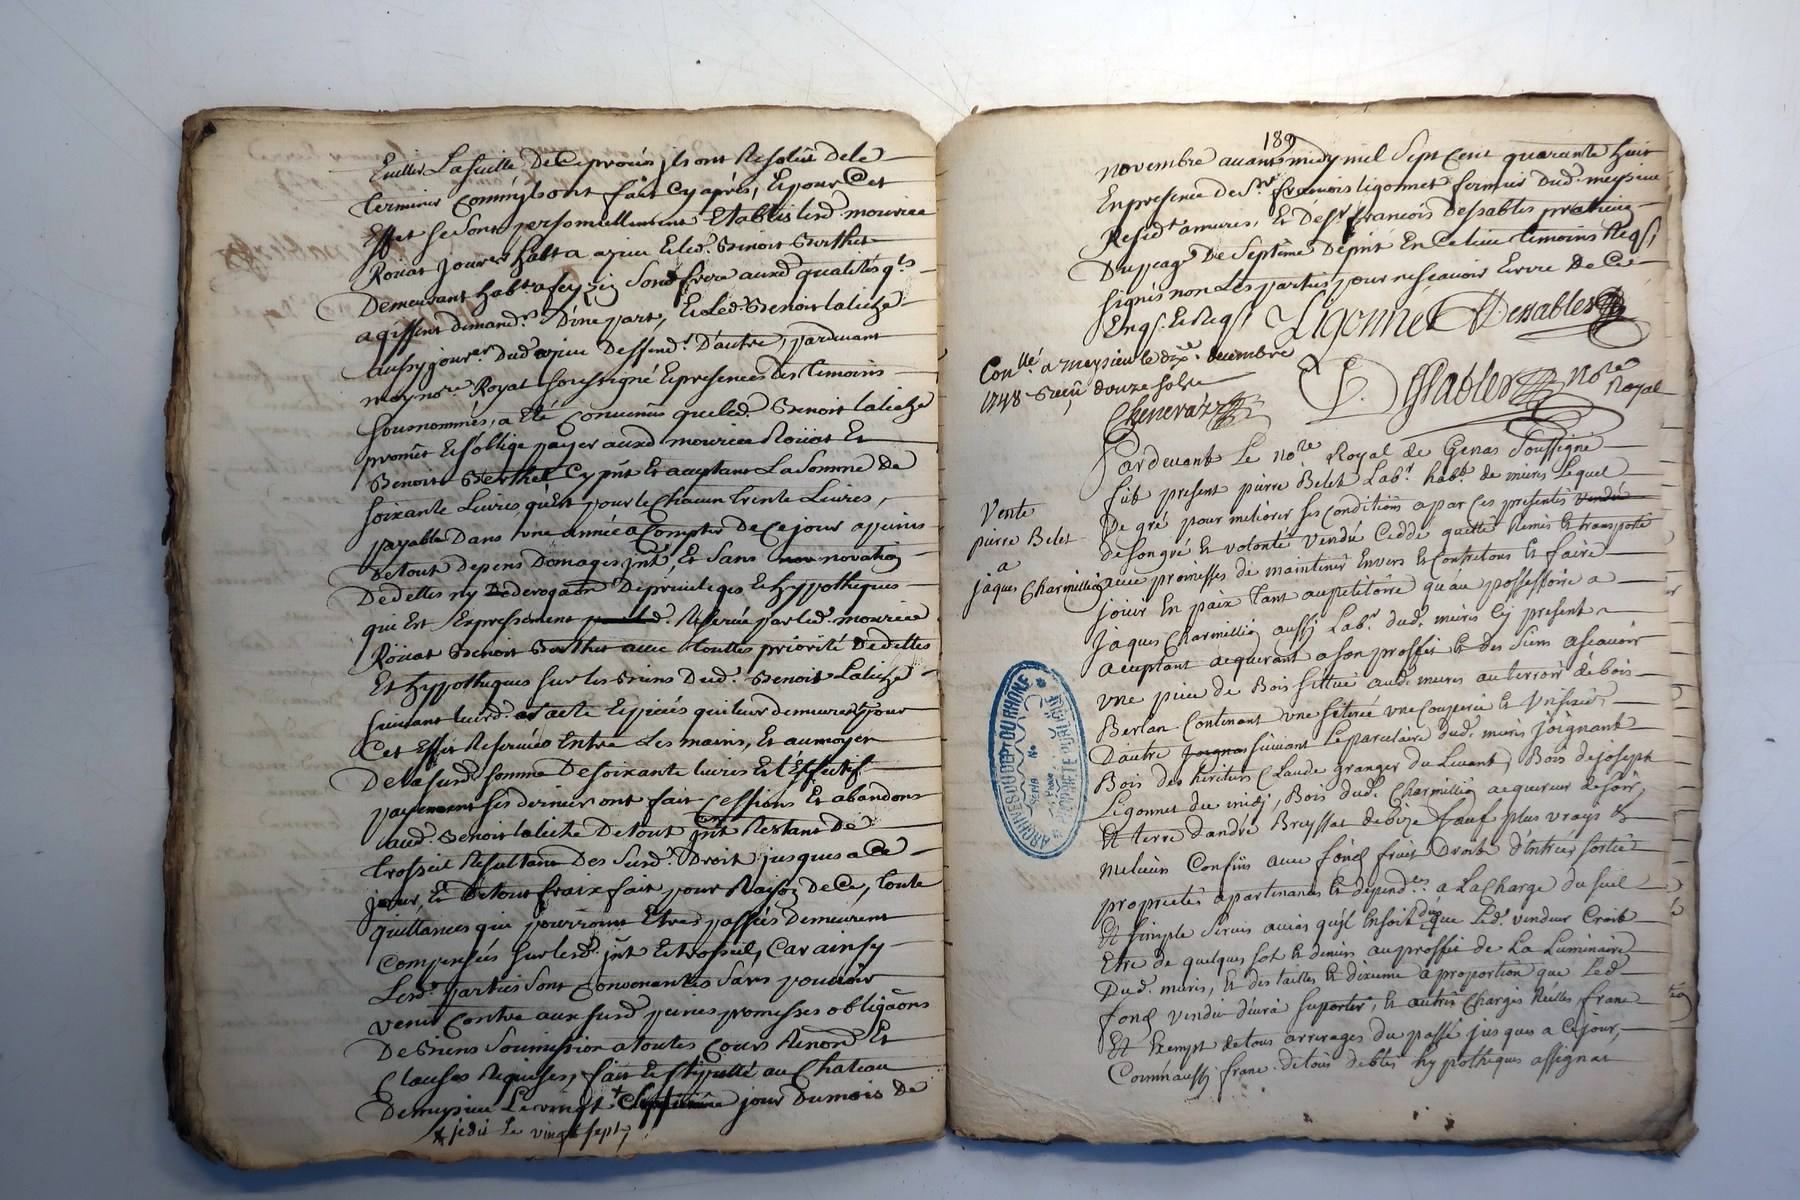 Eviter La suitte De Ce procés ils ont Resolüt de le
terminer Comm'ils ont fait Cy aprés, Et pour Cet
Effet se Sont personnellement Etablis lesd. mouriée
Roüat Jour.er habt. a azieu Et led. Benoit Berthet
Demeurant habt. a feyzin Sond. frere auxd. qualités qls.
agissent dimand.rs D'une part, Et led. Benoit laliche
aussy jour.er Dud. azieu Deffend.r D'autre, pardevant
moy no.re Royal soussigné Et presences des temoins
sousnommés, a été Convenüs que led. Benoit laliche
promet Et s'oblige payer auxd. mouriée Roüat Et
Benoit Berthet Cy pnt. Et aceptant La Somme De
soixante Livres, qu'est pour le Chacun trente Livres,
payable Dans une année a Compter De Ce jour a peines
De tout depens Domages jnt. Et Sans novation
De delles ny De derogaon De privileiges Et hypotheques
qui Est Expressement Reservée par led. mouriée
Roüat Benoit Berthet avec touttes priorité De delles
Et hypotheques sur les Biens Dud. Benoit Laliche
suivant leurd. acte Et piéces qui leur demeurent pour
Cet Effet Reservées Entre Les mains, Et au moyen
De la susd. somme De soixante livres Et L'Effectif
payement ses derniers ont fait Cession Et abandon
aud. Benoit laliche De tout jnt. Restant De
trosseil Resultant Des Susd. Droit jusques a Ce
jour, Et De tout fraix fait pour Raison De Ce, toute
quittances qui pourront Etres passées Demeurent
Compensés sur lesd. jnt. Et trosseil, Car ainsy
Lesd. parties Sont Convenantes Sans pouvoir
venir Contre aux susd. peines promesses obligaons
De Biens Soumission a toutes Cours Renon.d Et
Clauses Requises, fait Et stipullé au Chateau
De meysieu Le vingt + jour Du mois De
+ je dis Le vingt sept
189
novembre avant midy mil Sept Cent quarante huit
En presence De S.r francois ligonnet fermier Dud. meysieu
Resid.t a mures, Et De s.r francois Dessables praticien
Du Septême Depnt. En Ce lieu temoins Reqs.
signés non Les parties pour ne scavoir Ecrire De Ce
Enqs. Et Reqs. Ligonnet Dessables
Con.llé a meysieu le dix.e decembre
1748 Reçu douze sols
Cheneraz
D. Dessables no.re Royal
Pardevant Le No.re Royal de Genas Soussigné
fut present pierre Belet Lab.r habt. de mures Lequel
De gré pour meliorer ses Conditions a par Ces presentes vendu
de son gré Et volonté vendu Cedde quitte Remis Et transporté
avec promesses de maintenir Envers Et Contre tous Et faire
joüir En paix tant au petitoire qu'au possessoire a
Jaques Charmillion aussy Lab.r dud. mures Cy present
aceptant acquerant a son proffit Et des Siens a scavoir
Vente
pierre Belet
a
jaques Charmillion
une piece de Bois sittué aud. mures au terroir de bois
Berlan Contenant une seterée une Couperée Et
D'autre suivant Le parcelaire dud. mures joignant
Bois des heritiers Claude granger du Levant, Bois de joseph
Ligonnet du midi, Bois dud. Charmillion acquereur de soir,
Et terre d'andré Bruyssat de bize sauf plus vrays Et
meliurs Confins avec fond fruit Droits d'Entrées sorties
proprietés apartenances Et depend.ces a La Charge du suel
Et simple Servis au cas qu'il En soit dû que Led. vendeur Croit
Etre de quelques sol Et deniers au proffit de La Luminaire
Dud. mures, Et des tailles Et dixieme a proportion que Led.
fond vendu devra suporter, Et autres Charges Réelles, franc
Et Exempt de tous arrerages du passé jusques a Ce jour,
Comm'aussy franc de tous debtes hypotheques assignat
ARCHIVES DU DEPT DU RHÔNE
PROPRIÉTÉ PUBLIQUE
Série No